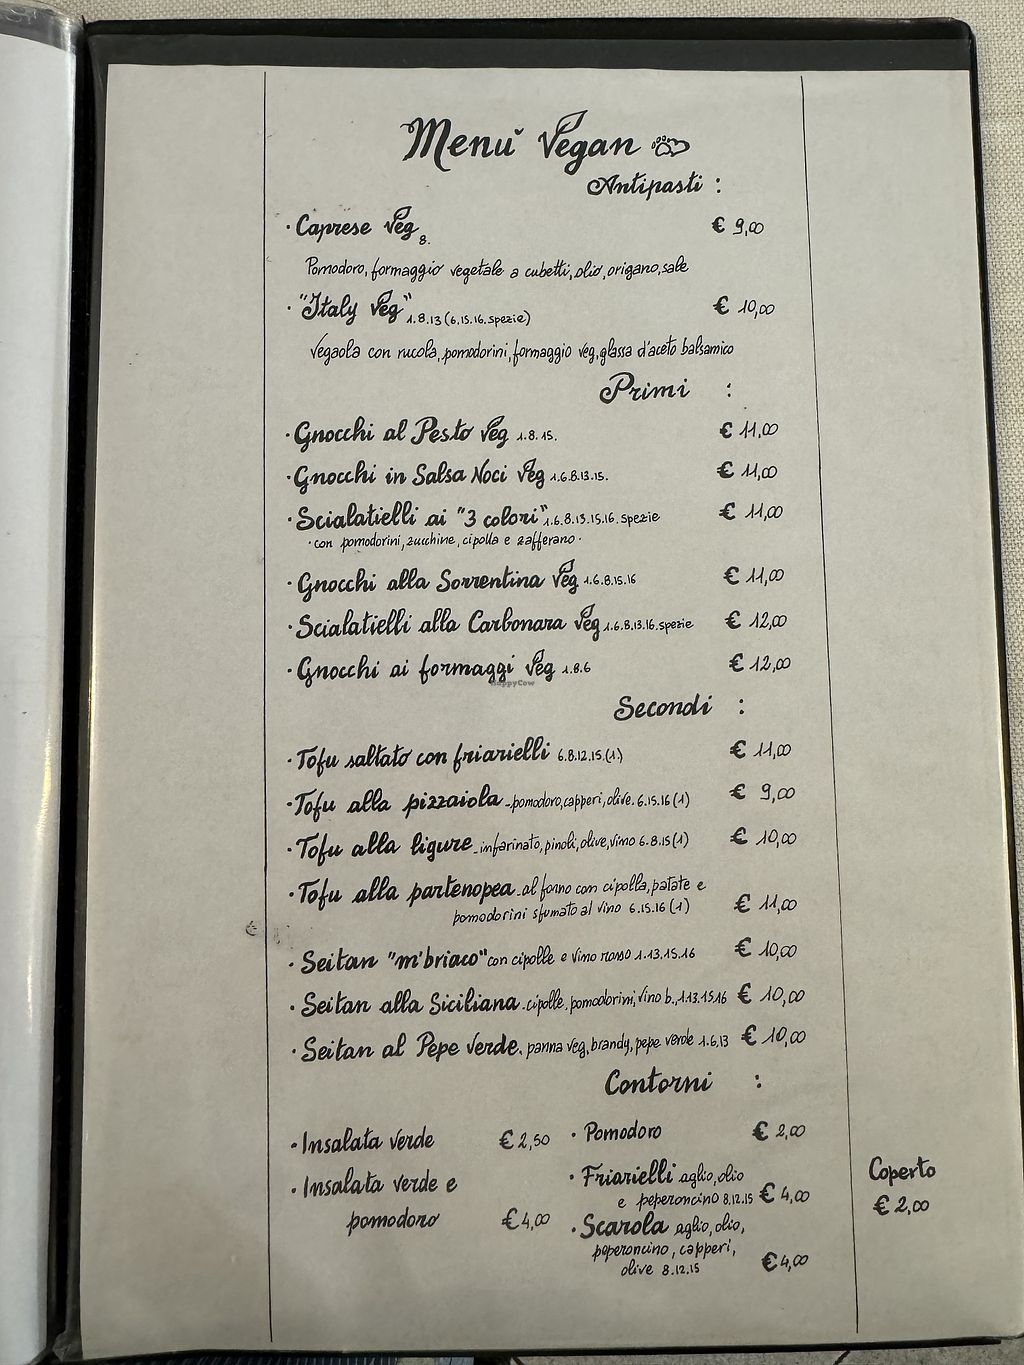 Menù Vegan
Antipasti :
· Caprese Veg 8. € 9,00
Pomodoro, formaggio vegetale a cubetti, olio, origano, sale
· "Italy Veg" 1.8.13 (6.15.16.spezie) € 10,00
Vegaola con rucola, pomodorini, formaggio veg, glassa d'aceto balsamico
Primi :
· Gnocchi al Pesto Veg 1.8.15. € 11,00
· Gnocchi in Salsa Noci Veg 1.6.8.13.15. € 11,00
· Scialatielli ai "3 colori" 1.6.8.13.15.16.spezie € 11,00
· con pomodorini, zucchine, cipolla e zafferano ·
· Gnocchi alla Sorrentina Veg 1.6.8.15.16 € 11,00
· Scialatielli alla Carbonara Veg 1.6.8.13.16.spezie € 12,00
· Gnocchi ai formaggi Veg 1.8.6 € 12,00
HappyCow
Secondi :
· Tofu saltato con friarielli 6.8.12.15.(1.) € 11,00
· Tofu alla pizzaiola - pomodoro, capperi, olive. 6.15.16 (1) € 9,00
· Tofu alla ligure - infarinato, pinoli, olive, vino 6.8.15 (1) € 10,00
· Tofu alla partenopea - al forno con cipolla, patate e
pomodorini sfumato al vino 6.15.16 (1) € 11,00
· Seitan "m'briaco" con cipolle e vino rosso 1.13.15.16 € 10,00
· Seitan alla Siciliana - cipolle, pomodorini, vino b., 1.13.15.16 € 10,00
· Seitan al Pepe Verde. panna veg, brandy, pepe verde 1.6.13 € 10,00
Contorni :
· Insalata verde € 2,50
· Insalata verde e
pomodoro € 4,00
· Pomodoro € 2,00
· Friarielli aglio, olio
e peperoncino 8.12.15 € 4,00
· Scarola aglio, olio,
peperoncino, capperi,
olive 8.12.15 € 4,00
Coperto
€ 2,00